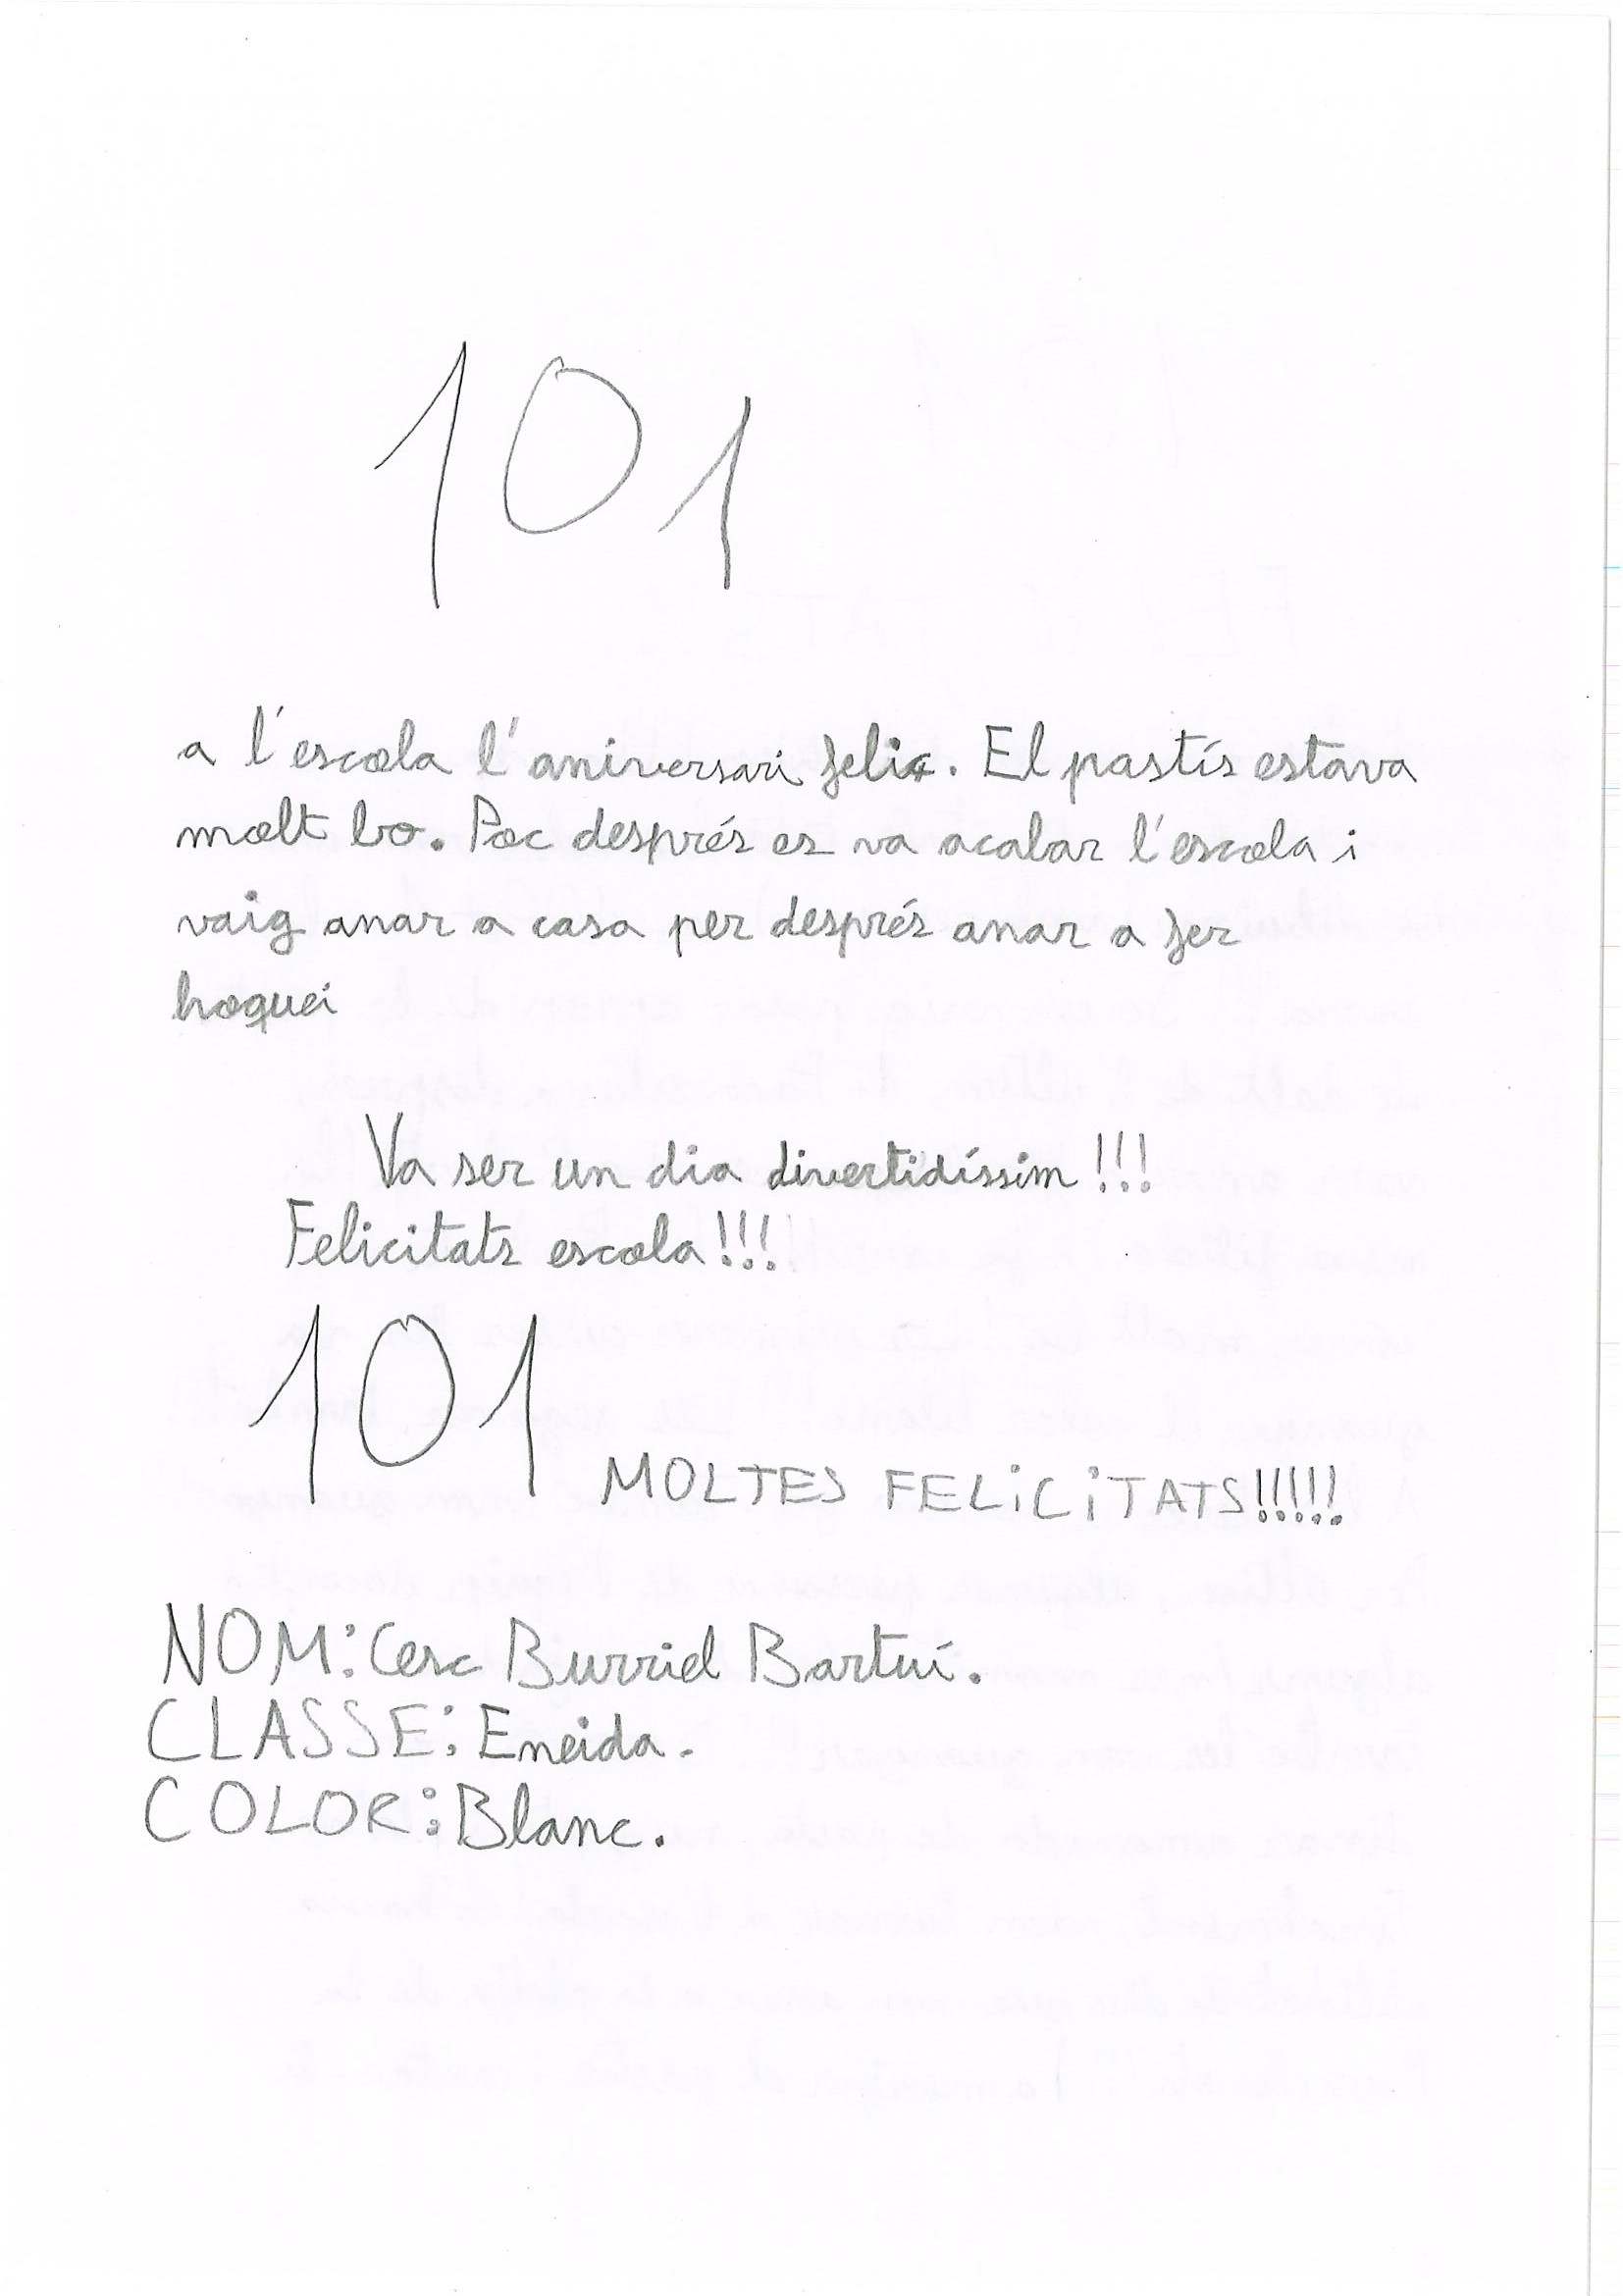 101
a l'escola l'aniversari feliç. El pastís estava
molt bo. Poc després es va acabar l'escola i
vaig anar a casa per després anar a fer
hoquei
Va ser un dia divertidíssim!!!
Felicitats escola!!!
101 MOLTES FELICITATS!!!!!
NOM: Cesc Burriel Bartuí.
CLASSE: Eneida.
COLOR: Blanc.